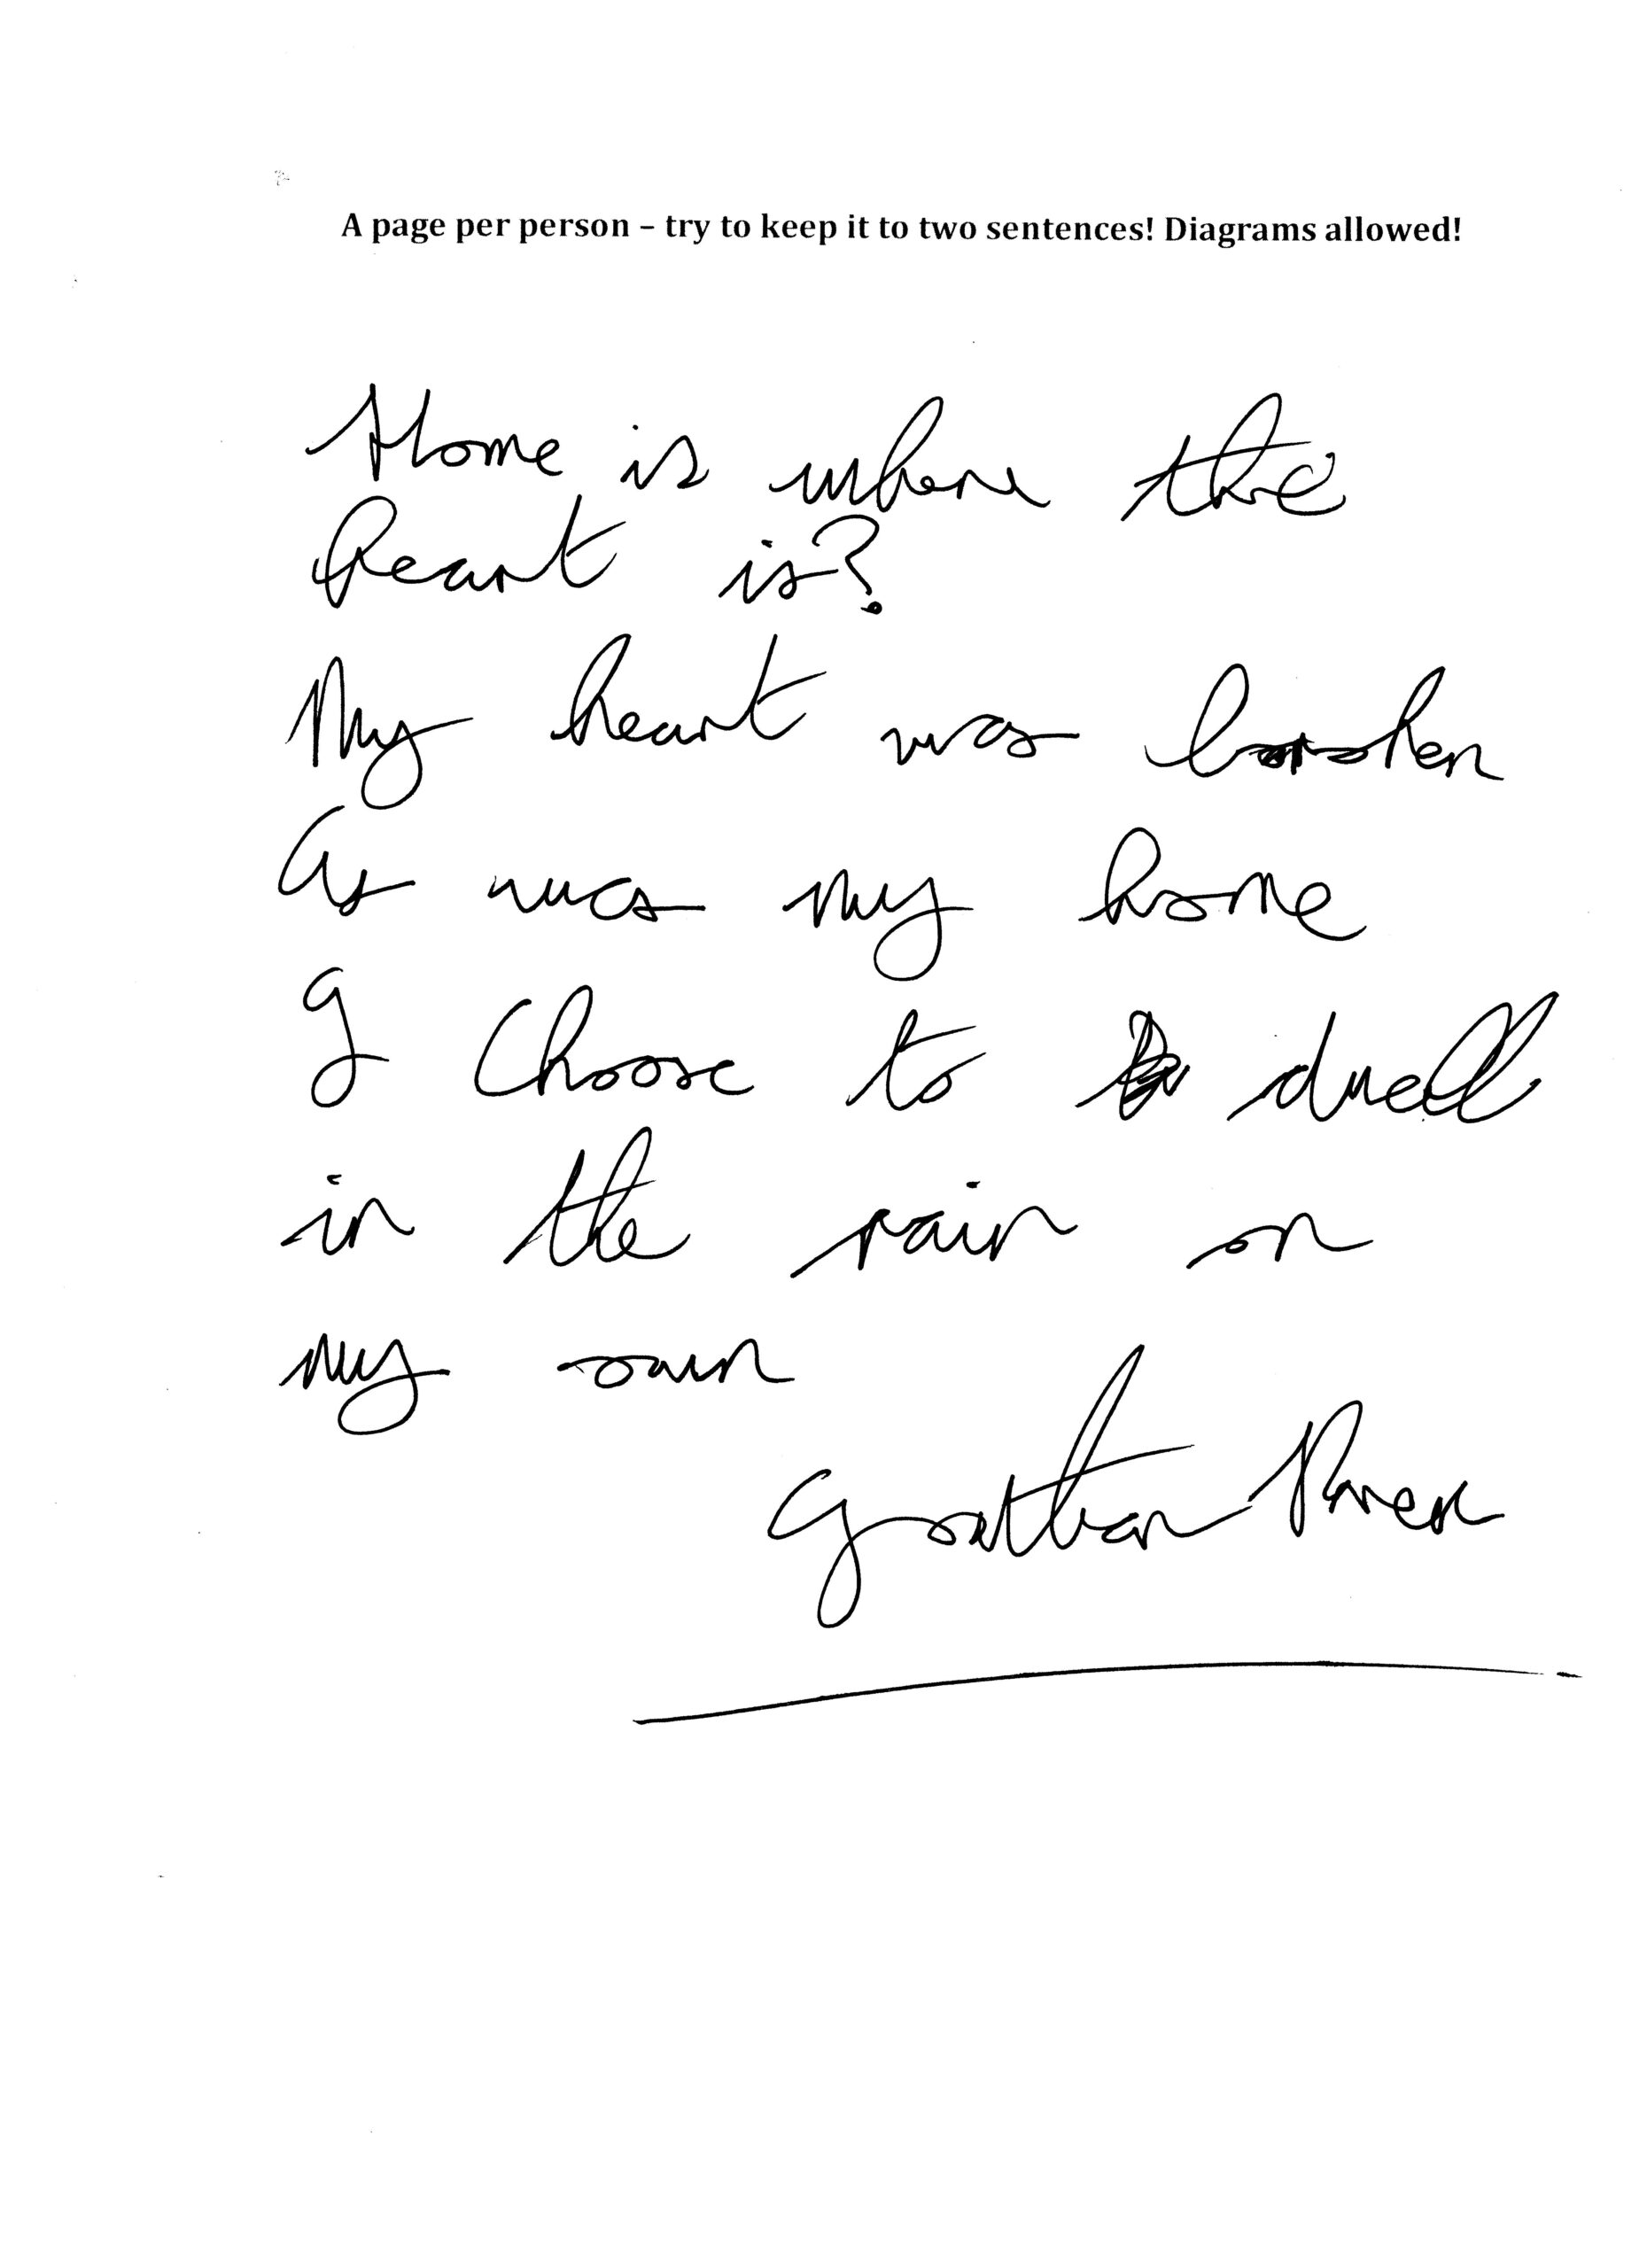 A page per person – try to keep it to two sentences! Diagrams allowed!
Home is where the
heart is?
My heart was broken
As was my home
I Choose to dwell
in the rain on
my own